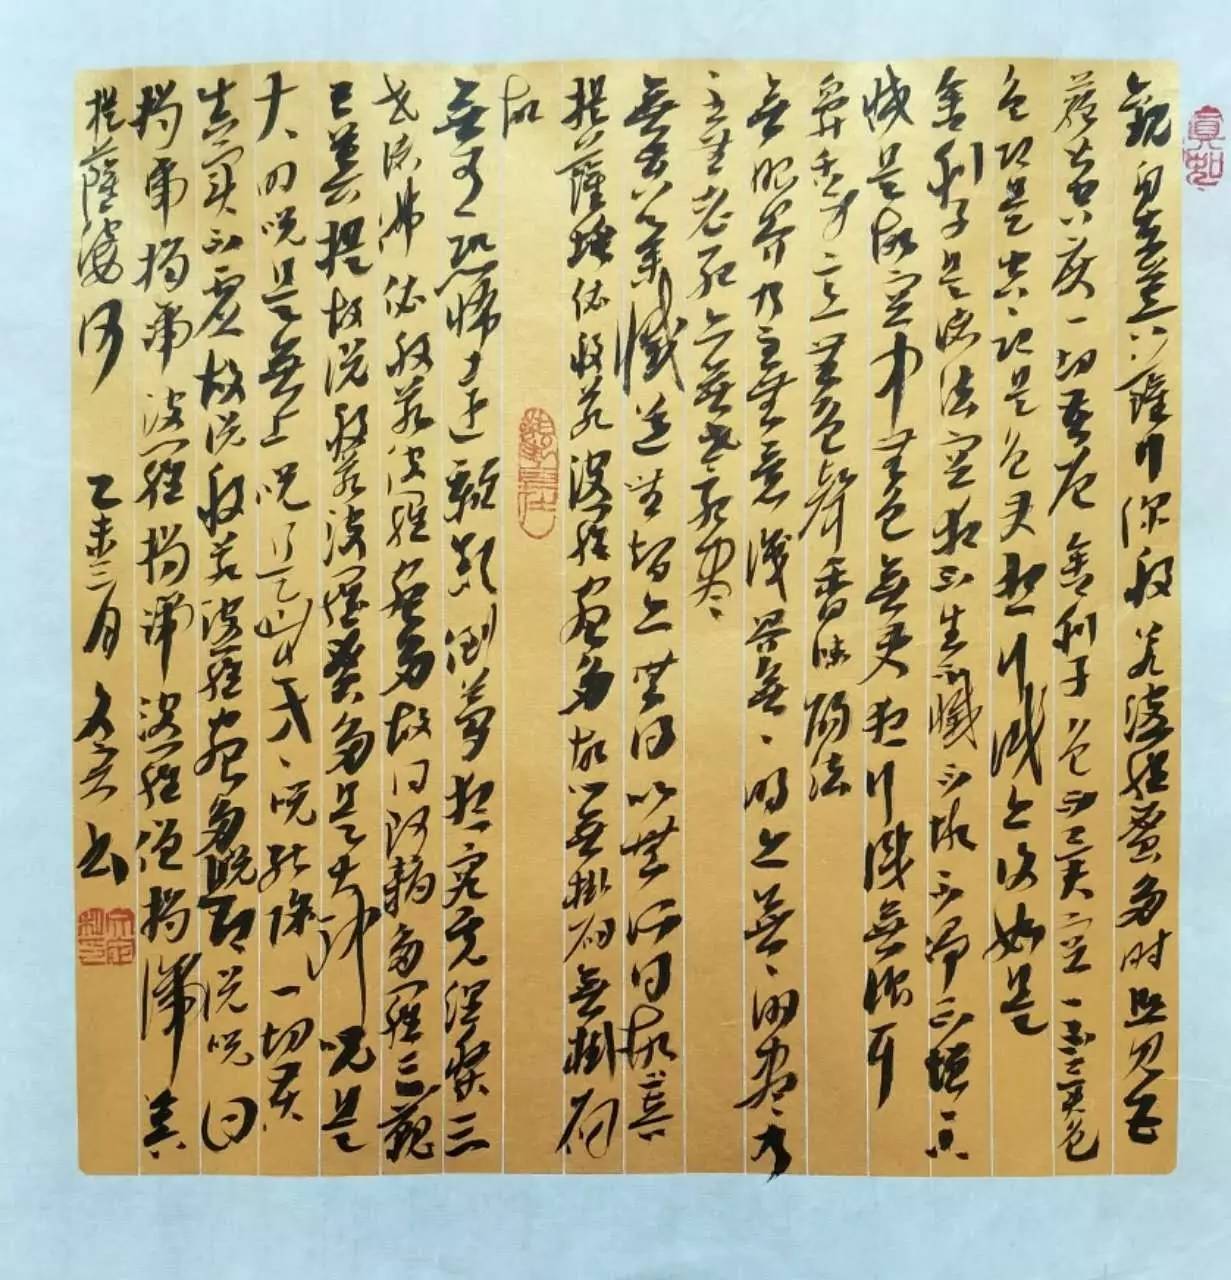 觀自在菩薩行深般若波羅蜜多時照見五
蘊皆空度一切苦厄舍利子色不異空空不異色
色即是空空即是色受想行識亦復如是
舍利子是諸法空相不生不滅不垢不淨不增不
減是故空中無色無受想行識無眼耳
鼻舌身意無色聲香味觸法
無眼界乃至無意識界無無明亦無無明盡乃
至無老死亦無老死盡
無苦集滅道無智亦無得以無所得故菩
提薩埵依般若波羅蜜多故心無掛礙無掛礙
故
無有恐怖遠離顛倒夢想究竟涅槃三
世諸佛依般若波羅蜜多故得阿耨多羅三藐
三菩提故說般若波羅蜜多是大神咒是
大明咒是無上咒是無等、咒能除一切苦
真實不虛故說般若波羅蜜多咒即說咒曰
揭帝揭帝波羅揭帝波羅僧揭諦菩
提薩婆訶 乙未三月 书
真如